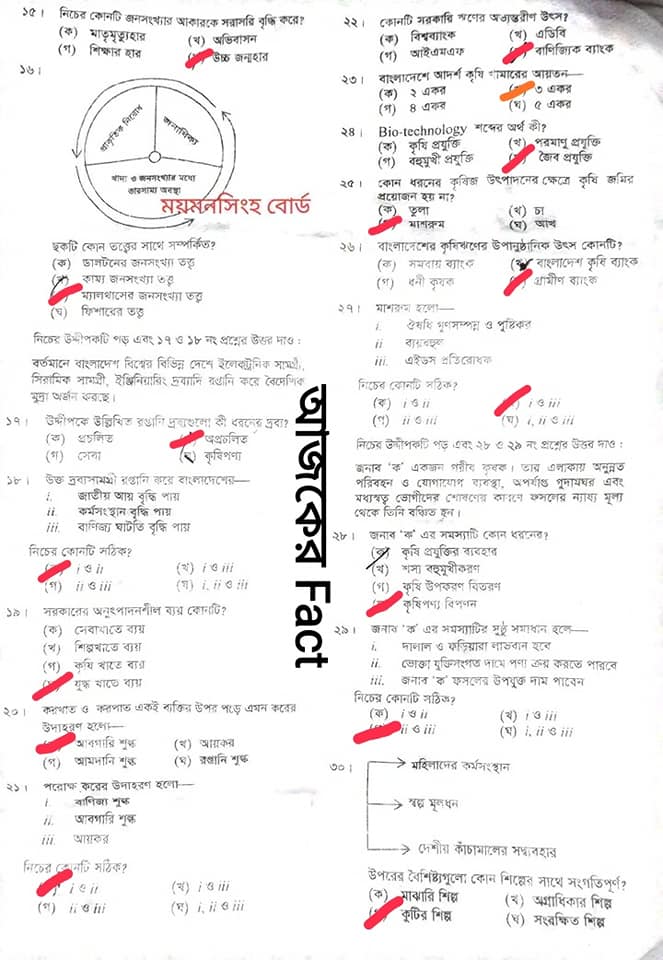 ১৫। নিচের কোনটি জনসংখ্যার আকারকে সরাসরি বৃদ্ধি করে?
(ক) মাতৃমৃত্যুহার (খ) অভিবাসন
(গ) শিক্ষার হার উচ্চ জন্মহার
১৬।
প্রাকৃতিক নিরোধ
জনাধিক্য
খাদ্য ও জনসংখ্যার মধ্যে
ভারসাম্য অবস্থা
ময়মনসিংহ বোর্ড
ছকটি কোন তত্ত্বের সাথে সম্পর্কিত?
(ক) ডালটনের জনসংখ্যা তত্ত্ব
(খ) কাম্য জনসংখ্যা তত্ত্ব
ম্যালথাসের জনসংখ্যা তত্ত্ব
(ঘ) ফিশারের তত্ত্ব
নিচের উদ্দীপকটি পড় এবং ১৭ ও ১৮ নং প্রশ্নের উত্তর দাও :
বর্তমানে বাংলাদেশ বিশ্বের বিভিন্ন দেশে ইলেকট্রনিক সামগ্রী,
সিরামিক সামগ্রী, ইঞ্জিনিয়ারিং দ্রব্যাদি রপ্তানি করে বৈদেশিক
মুদ্রা অর্জন করছে।
১৭। উদ্দীপকে উল্লিখিত রপ্তানি দ্রব্যগুলো কী ধরনের দ্রব্য?
(ক) প্রচলিত অপ্রচলিত
(গ) সেবা (ঘ) কৃষিপণ্য
১৮। উক্ত দ্রব্যসামগ্রী রপ্তানি করে বাংলাদেশের—
i. জাতীয় আয় বৃদ্ধি পায়
ii. কর্মসংস্থান বৃদ্ধি পায়
iii. বাণিজ্য ঘাটতি বৃদ্ধি পায়
নিচের কোনটি সঠিক?
i ও ii (খ) i ও iii
(গ) ii ও iii (ঘ) i, ii ও iii
১৯। সরকারের অনুৎপাদনশীল ব্যয় কোনটি?
(ক) সেবাখাতে ব্যয়
(খ) শিল্পখাতে ব্যয়
(গ) কৃষি খাতে ব্যয়
যুদ্ধ খাতে ব্যয়
২০। করঘাত ও করপাত একই ব্যক্তির উপর পড়ে এমন করের
উদাহরণ হলো—
আবগারি শুল্ক (খ) আয়কর
(গ) আমদানি শুল্ক (ঘ) রপ্তানি শুল্ক
২১। পরোক্ষ করের উদাহরণ হলো—
i. বাণিজ্য শুল্ক
ii. আবগারি শুল্ক
iii. আয়কর
নিচের কোনটি সঠিক?
i ও ii (খ) i ও iii
(গ) ii ও iii (ঘ) i, ii ও iii
আজকের Fact
২২। কোনটি সরকারি ঋণের অভ্যন্তরীণ উৎস?
(ক) বিশ্বব্যাংক (খ) এডিবি
(গ) আইএমএফ বাণিজ্যিক ব্যাংক
২৩। বাংলাদেশে আদর্শ কৃষি খামারের আয়তন—
(ক) ২ একর ৩ একর
(গ) ৪ একর (ঘ) ৫ একর
২৪। Bio-technology শব্দের অর্থ কী?
(ক) কৃষি প্রযুক্তি (খ) পরমাণু প্রযুক্তি
(গ) বহুমুখী প্রযুক্তি জৈব প্রযুক্তি
২৫। কোন ধরনের কৃষিজ উৎপাদনের ক্ষেত্রে কৃষি জমির
প্রয়োজন হয় না?
(ক) তুলা (খ) চা
মাশরুম (ঘ) আখ
২৬। বাংলাদেশের কৃষিঋণের উপানুষ্ঠানিক উৎস কোনটি?
(ক) সমবায় ব্যাংক (খ) বাংলাদেশ কৃষি ব্যাংক
(গ) ধনী কৃষক গ্রামীণ ব্যাংক
২৭। মাশরুম হলো—
i. ঔষধি গুণসম্পন্ন ও পুষ্টিকর
ii. ব্যয়বহুল
iii. এইডস প্রতিরোধক
নিচের কোনটি সঠিক?
(ক) i ও ii i ও iii
(গ) ii ও iii (ঘ) i, ii ও iii
নিচের উদ্দীপকটি পড় এবং ২৮ ও ২৯ নং প্রশ্নের উত্তর দাও :
জনাব ‘ক’ একজন গরীব কৃষক। তার এলাকায় অনুন্নত
পরিবহন ও যোগাযোগ ব্যবস্থা, অপর্যাপ্ত গুদামঘর এবং
মধ্যস্বত্ব ভোগীদের শোষণের কারণে ফসলের ন্যায্য মূল্য
থেকে তিনি বঞ্চিত হন।
২৮। জনাব ‘ক’ এর সমস্যাটি কোন ধরনের?
(ক) কৃষি প্রযুক্তির ব্যবহার
(খ) শস্য বহুমুখীকরণ
(গ) কৃষি উপকরণ বিতরণ
কৃষিপণ্য বিপণন
২৯। জনাব ‘ক’ এর সমস্যাটির সুষ্ঠু সমাধান হলে—
i. দালাল ও ফড়িয়ারা লাভবান হবে
ii. ভোক্তা যুক্তিসংগত দামে পণ্য ক্রয় করতে পারবে
iii. জনাব ‘ক’ ফসলের উপযুক্ত দাম পাবেন
নিচের কোনটি সঠিক?
(ক) i ও ii (খ) i ও iii
ii ও iii (ঘ) i, ii ও iii
৩০।
মহিলাদের কর্মসংস্থান
স্বল্প মূলধন
দেশীয় কাঁচামালের সদ্ব্যবহার
উপরের বৈশিষ্ট্যগুলো কোন শিল্পের সাথে সংগতিপূর্ণ?
(ক) মাঝারি শিল্প (খ) অগ্রাধিকার শিল্প
কুটির শিল্প (ঘ) সংরক্ষিত শিল্প